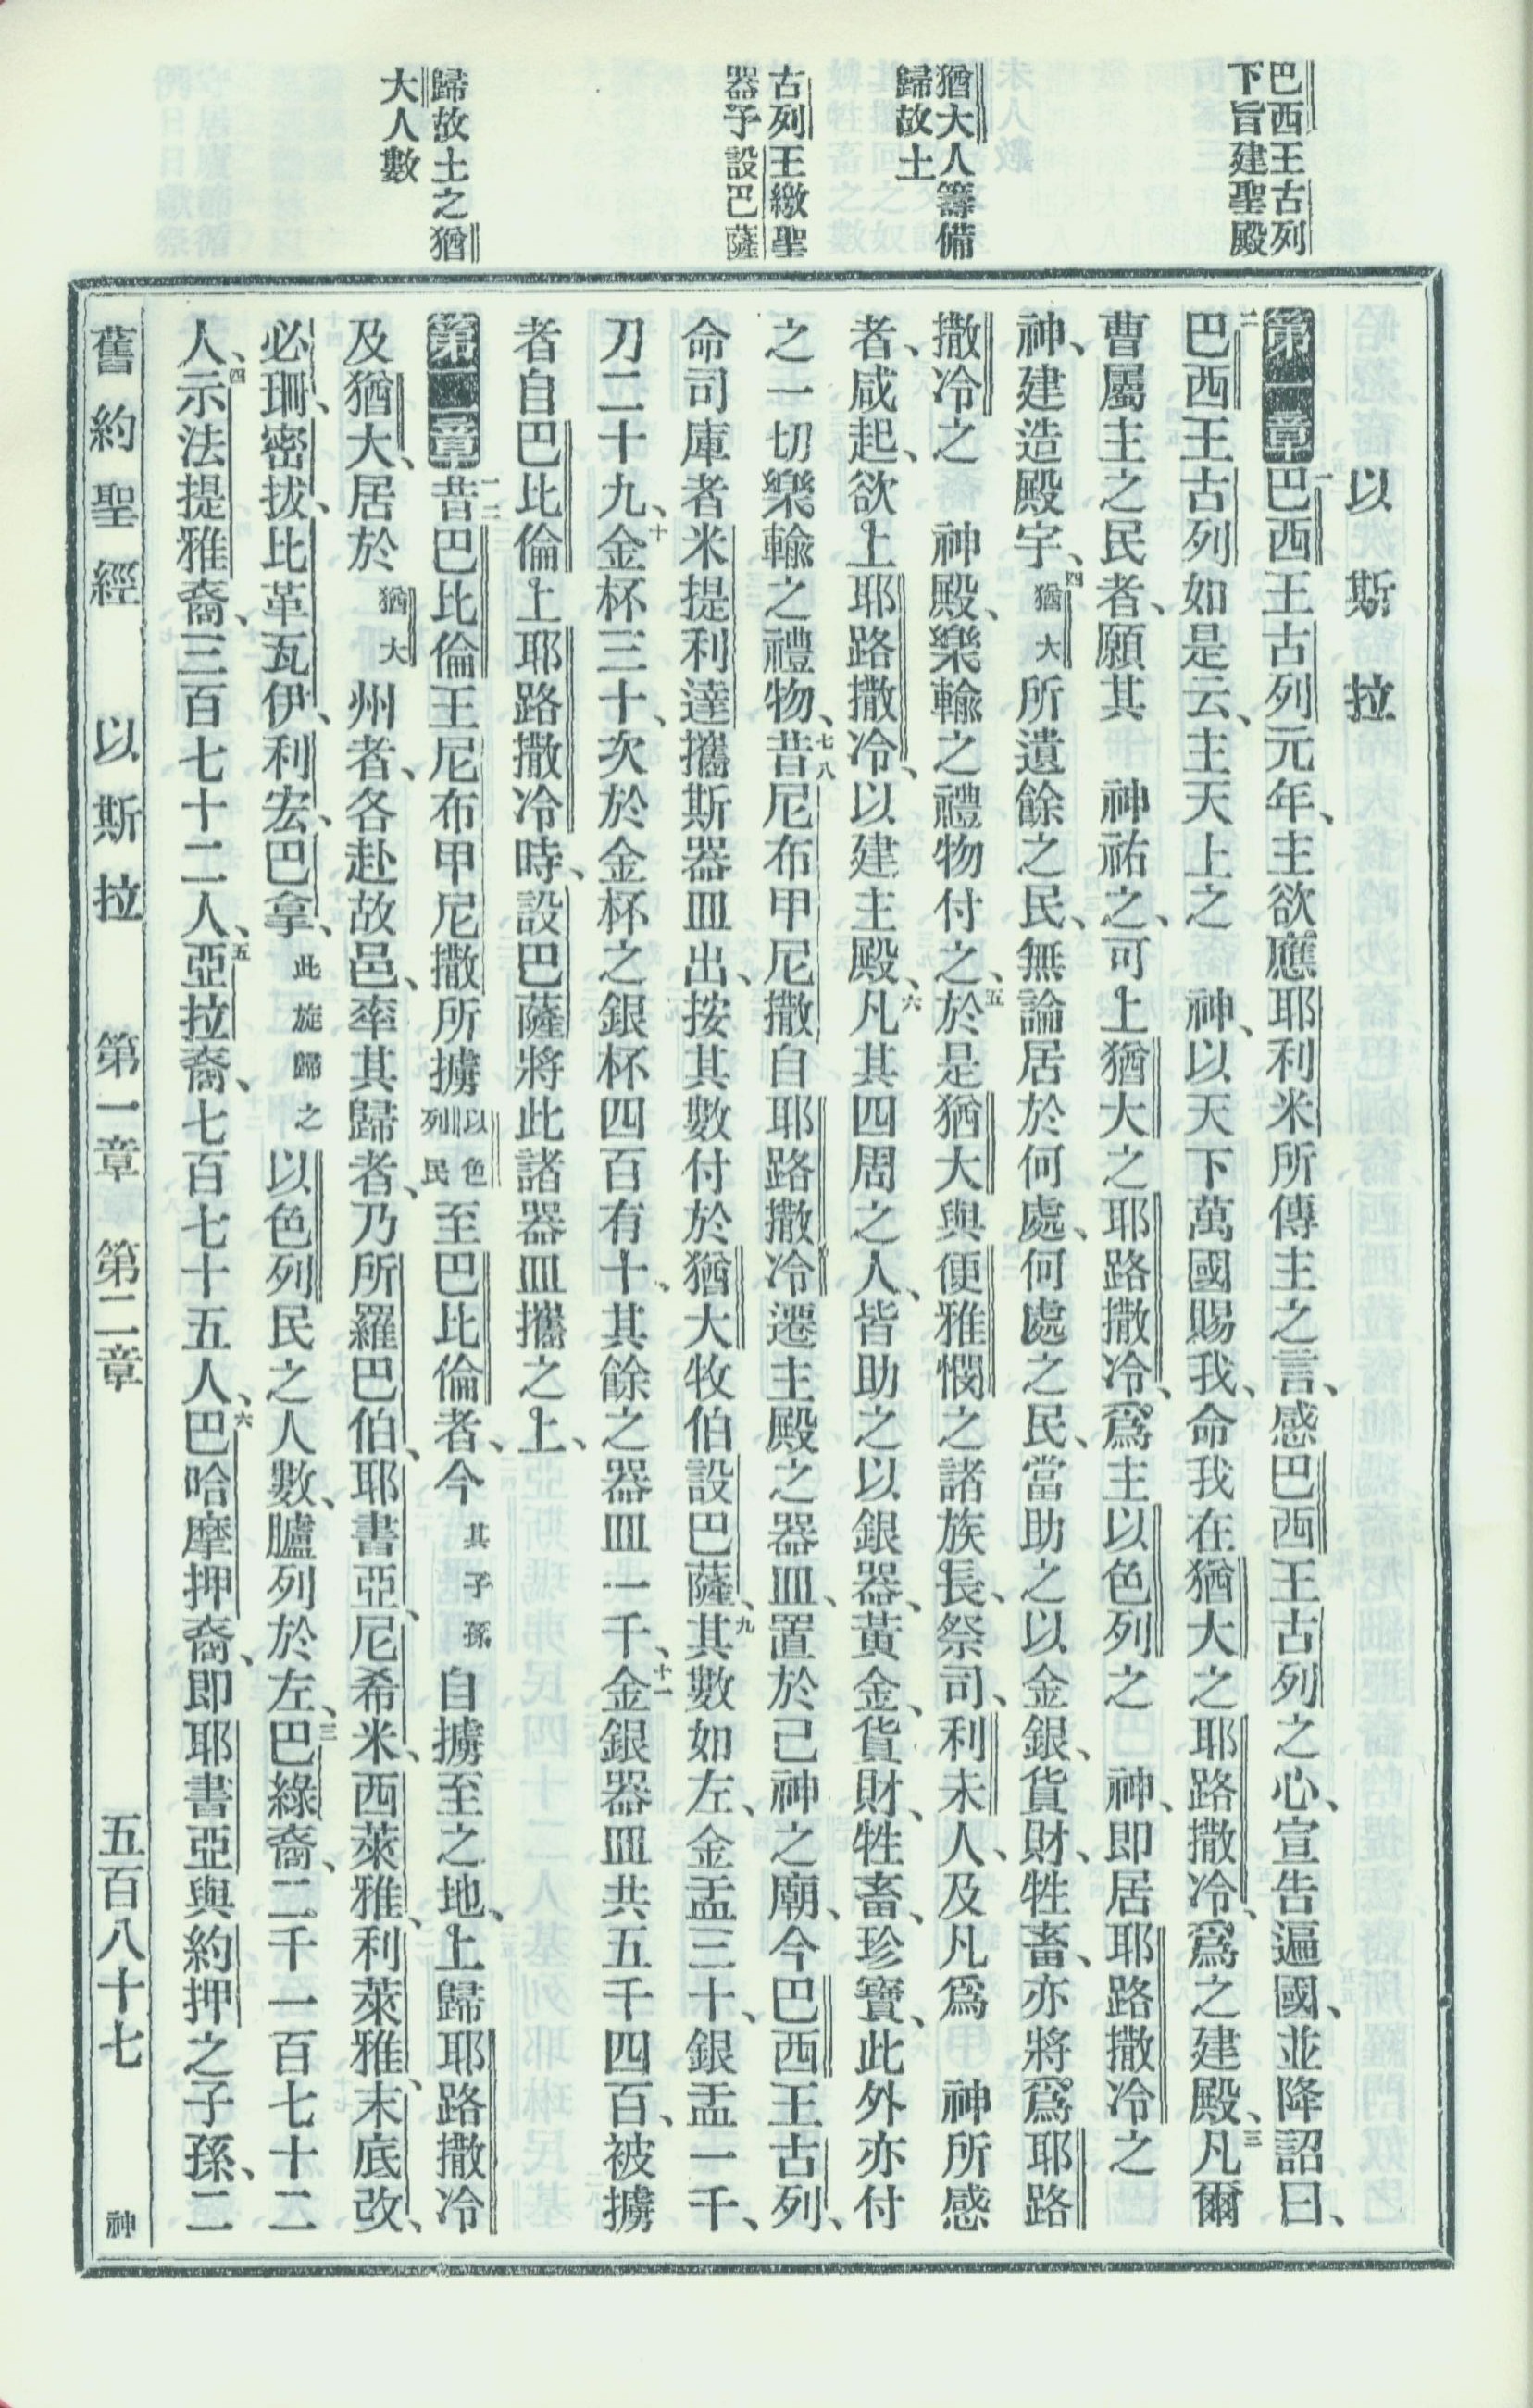 巴西王古列
下旨建聖殿
猶大人籌備
歸故土
古列王繳聖
器予設巴薩
歸故土之猶
大人數
以斯拉
第一章 一巴西王古列元年、主欲應耶利米所傳主之言、感巴西王古列之心、宣告遍國、並降詔曰、
二巴西王古列如是云、主天上之 神、以天下萬國賜我、命我在猶大之耶路撒冷、爲之建殿、三凡爾
曹屬主之民者、願其 神祐之、可上猶大之耶路撒冷、爲主以色列之 神、即居耶路撒冷之
神、建造殿宇、四猶大所遺餘之民、無論居於何處、何處之民、當助之以金銀、貨財、牲畜、亦將爲耶路
撒冷之 神殿、樂輸之禮物付之、五於是猶大與便雅憫之諸族長、祭司、利未人、及凡爲 神所感
者、咸起、欲上耶路撒冷、以建主殿、六凡其四周之人、皆助之以銀器、黃金、貨財、牲畜、珍寶、此外亦付
之一切樂輸之禮物、七八昔尼布甲尼撒自耶路撒冷遷主殿之器皿、置於己神之廟、今巴西王古列、
命司庫者米提利達攜斯器皿出、按其數付於猶大牧伯設巴薩、九其數如左、金盂三十、銀盂一千、
刀二十九、十金杯三十、次於金杯之銀杯四百有十、其餘之器皿一千、十一金銀器皿共五千四百、被擄
者自巴比倫上耶路撒冷時、設巴薩將此諸器皿攜之上、
第二章 一二昔巴比倫王尼布甲尼撒所擄以色列民至巴比倫者、今其子孫自擄至之地、上歸耶路撒冷
及猶大、居於猶大州者、各赴故邑、率其歸者、乃所羅巴伯、耶書亞、尼希米、西萊雅、利萊雅、末底改、
必珊、密拔、比革瓦伊、利宏、巴拿、此旋歸之以色列民之人數、臚列於左、三巴綠裔、二千一百七十二
人、四示法提雅裔、三百七十二人、五亞拉裔、七百七十五人、六巴哈摩押裔、即耶書亞與約押之子孫、二
舊約聖經 以斯拉 第一章 第二章 五百八十七 神